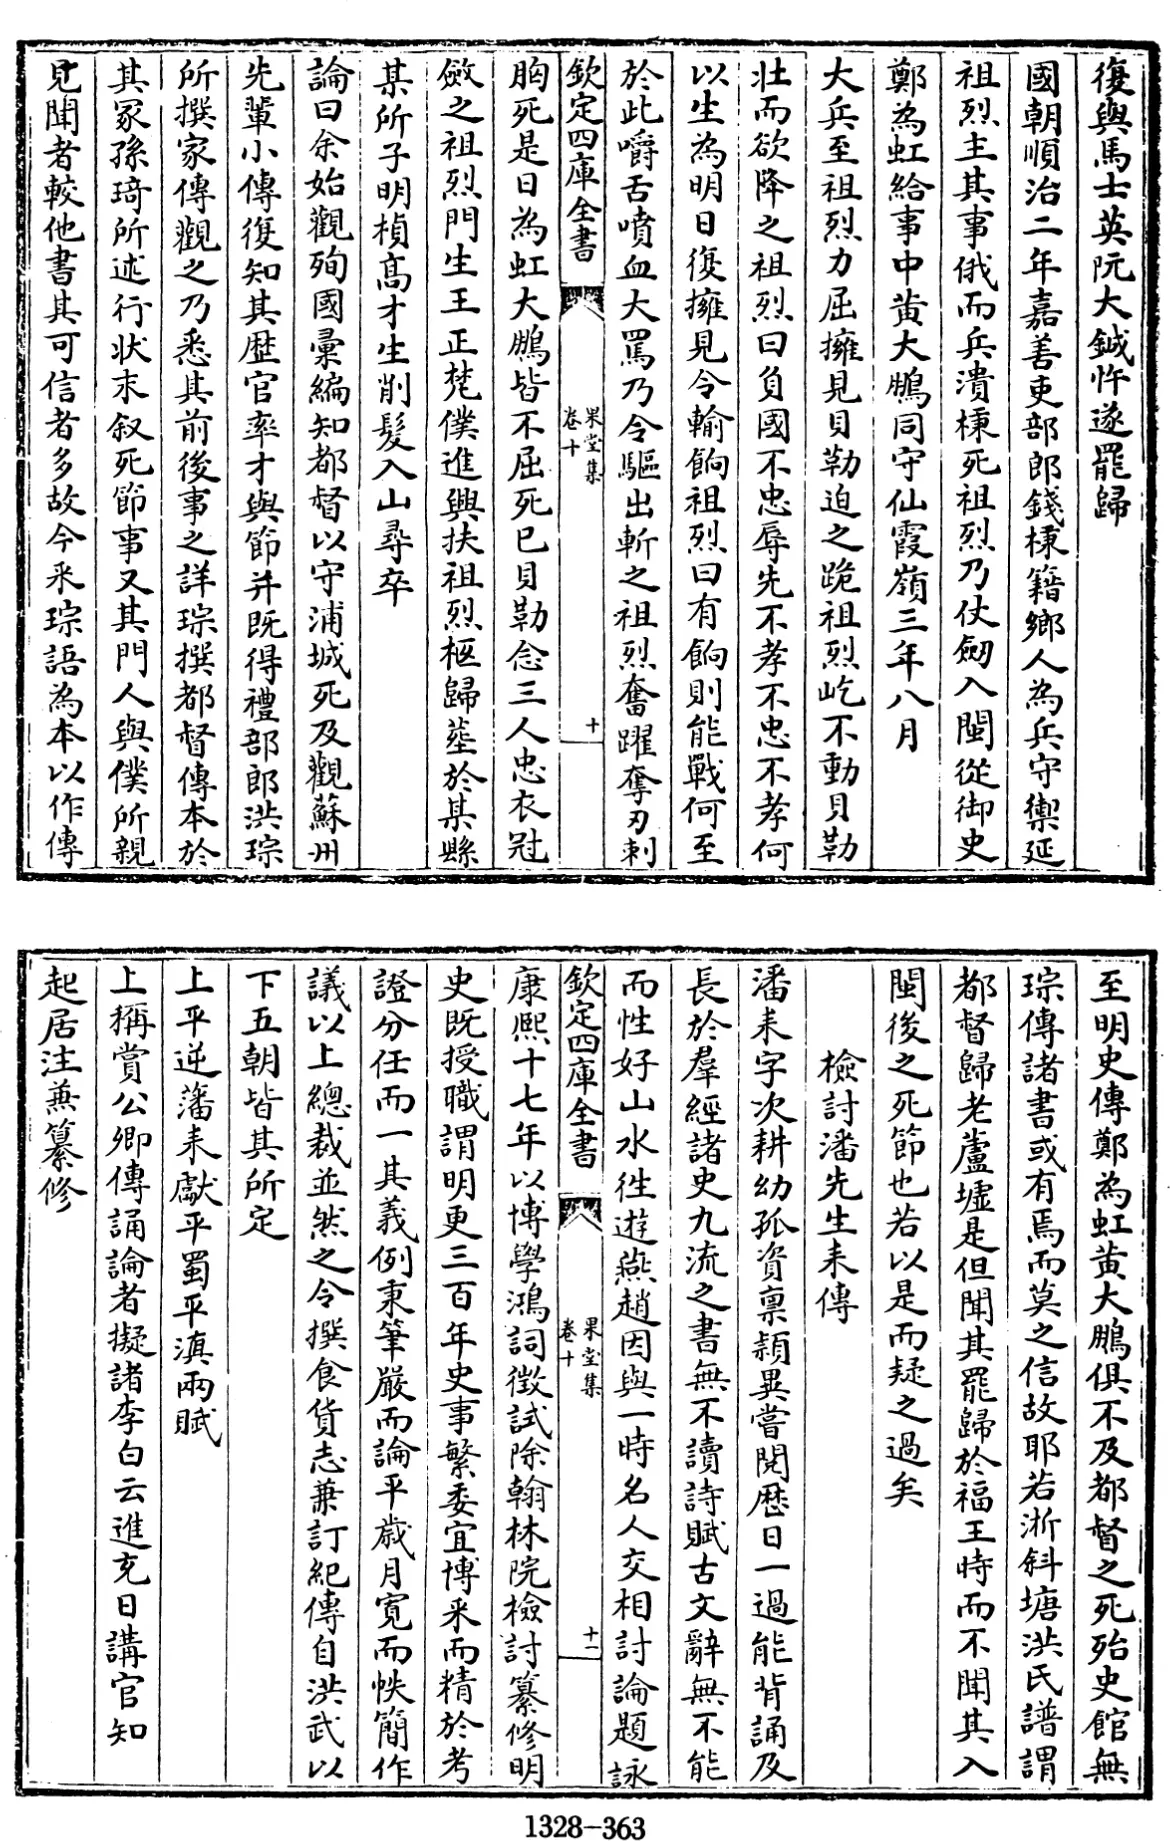 復與馬士英阮大鋮忤遂罷歸
國朝順治二年嘉善吏部郎錢棅籍鄉人為兵守禦延
祖烈主其事俄而兵潰棅死祖烈乃仗劒入閩從御史
鄭為虹給事中黄大鵬同守仙霞嶺三年八月
大兵至祖烈力屈擁見貝勒迫之跪祖烈屹不動貝勒
壯而欲降之祖烈曰負國不忠辱先不孝不忠不孝何
以生為明日復擁見令輸餉祖烈曰有餉則能戰何至
於此嚼舌噴血大罵乃令驅出斬之祖烈奮躍奪刃刺
欽定四庫全書
果堂集
卷十
十
胸死是日為虹大鵬皆不屈死已貝勒念三人忠衣冠
斂之祖烈門生王正梵僕進興扶祖烈柩歸塟於某縣
某所子明楨髙才生削髮入山尋卒
論曰余始觀殉國彙編知都督以守浦城死及觀蘇州
先輩小傳復知其歴官率才與節并既得禮部郎洪琮
所撰家傳觀之乃悉其前後事之詳琮撰都督傳本於
其冢孫琦所述行狀末叙死節事又其門人與僕所親
見聞者較他書其可信者多故今采琮語為本以作傳
至明史傳鄭為虹黄大鵬俱不及都督之死殆史館無
琮傳諸書或有焉而莫之信故耶若浙斜塘洪氏譜謂
都督歸老蘆墟是但聞其罷歸於福王時而不聞其入
閩後之死節也若以是而疑之過矣
檢討潘先生耒傳
潘耒字次耕幼孤資禀穎異嘗閱歴日一過能背誦及
長於羣經諸史九流之書無不讀詩賦古文辭無不能
而性好山水徃遊燕趙因與一時名人交相討論題詠
欽定四庫全書
果堂集
卷十
十一
康熙十七年以博學鴻詞徴試除翰林院檢討纂修明
史既授職謂明更三百年史事繁委宜博采而精於考
證分任而一其義例秉筆嚴而論平歲月寛而帙簡作
議以上總裁並然之令撰食貨志兼訂紀傳自洪武以
下五朝皆其所定
上平逆藩耒獻平蜀平滇兩賦
上稱賞公卿傳誦論者擬諸李白云進充日講官知
起居注兼纂修
1328-363